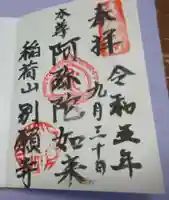 奉拝
令和五年
九月三十日
本尊
阿弥陀如来
稲荷山 別願寺